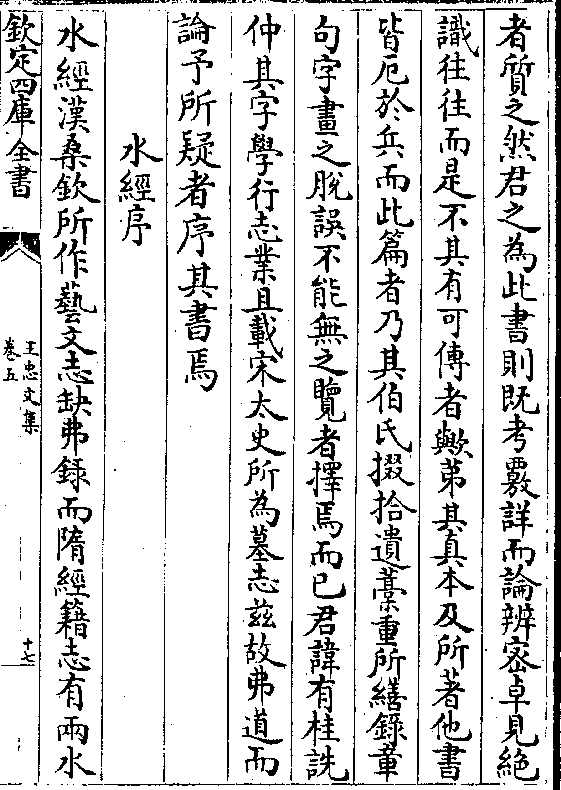 者質之然君之為此書則既考覈詳而論辨宻卓見絶
識往往而是不其有可傳者歟第其真本及所著他書
皆厄於兵而此篇者乃其伯氏掇拾遺藁重所繕錄章
句字畫之脫誤不能無之覽者擇焉而已君諱有桂詵
仲其字學行志業且載宋太史所為墓志兹故弗道而
論予所疑者序其書焉
水經序
水經漢桑欽所作藝文志缺弗録而隋經籍志有兩水
欽定四庫全書
王忠文集
卷五
十七